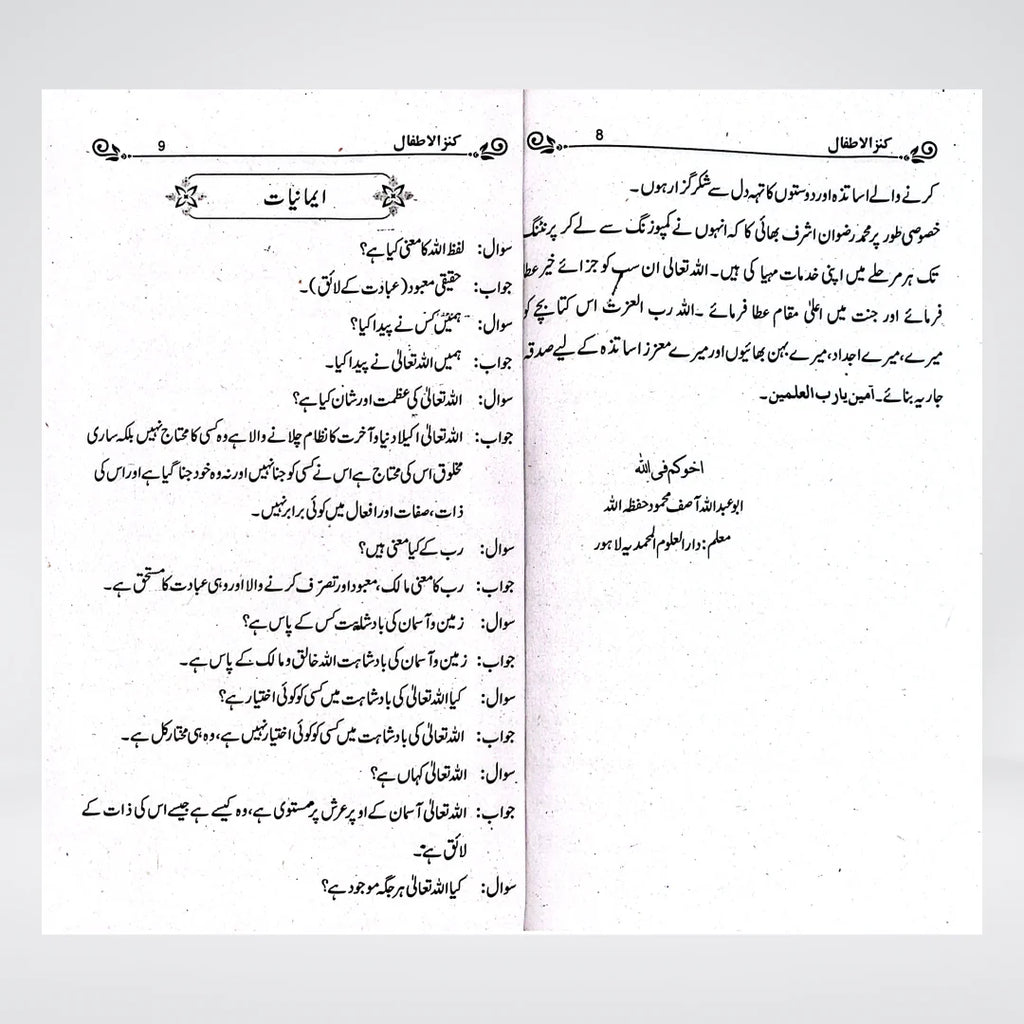 کنز الاطفال 8
کرنے والے اساتذہ اور دوستوں کا تہہ دل سے شکر گزار ہوں۔
خصوصی طور پر محمد رضوان اشرف بھائی کا کہ انہوں نے کمپوزنگ سے لے کر پرنٹنگ
تک ہر مرحلے میں اپنی خدمات مہیا کی ہیں۔ اللہ تعالیٰ ان سب کو جزائے خیر عطا
فرمائے اور جنت میں اعلیٰ مقام عطا فرمائے۔ اللہ رب العزت اس کتابچے کو
میرے، میرے اجداد، میرے بہن بھائیوں اور میرے معزز اساتذہ کے لیے صدقہ
جاریہ بنائے۔ آمین یارب العلمین۔
اخوکم فی اللہ
ابو عبداللہ آصف محمود حفظہ اللہ
معلم: دارالعلوم المحمدیہ لاہور
کنز الاطفال 9
ایمانیات
سوال: لفظ اللہ کا معنی کیا ہے؟
جواب: حقیقی معبود (عبادت کے لائق)۔
سوال: ہمیں کس نے پیدا کیا؟
جواب: ہمیں اللہ تعالیٰ نے پیدا کیا۔
سوال: اللہ تعالیٰ کی عظمت اور شان کیا ہے؟
جواب: اللہ تعالیٰ اکیلا دنیا و آخرت کا نظام چلانے والا ہے وہ کسی کا محتاج نہیں بلکہ ساری
مخلوق اس کی محتاج ہے اس نے کسی کو جنا نہیں اور نہ وہ خود جنا گیا ہے اور اس کی
ذات، صفات اور افعال میں کوئی برابر نہیں۔
سوال: رب کے کیا معنی ہیں؟
جواب: رب کا معنی مالک، معبود اور تصرّف کرنے والا اور وہی عبادت کا مستحق ہے۔
سوال: زمین و آسمان کی بادشاہت کس کے پاس ہے؟
جواب: زمین و آسمان کی بادشاہت اللہ خالق و مالک کے پاس ہے۔
سوال: کیا اللہ تعالیٰ کی بادشاہت میں کسی کو کوئی اختیار ہے؟
جواب: اللہ تعالیٰ کی بادشاہت میں کسی کو کوئی اختیار نہیں ہے، وہ ہی مختار کل ہے۔
سوال: اللہ تعالیٰ کہاں ہے؟
جواب: اللہ تعالیٰ آسمان کے اوپر عرش پر مستوی ہے، وہ کیسے ہے جیسے اس کی ذات کے
لائق ہے۔
سوال: کیا اللہ تعالیٰ ہر جگہ موجود ہے؟